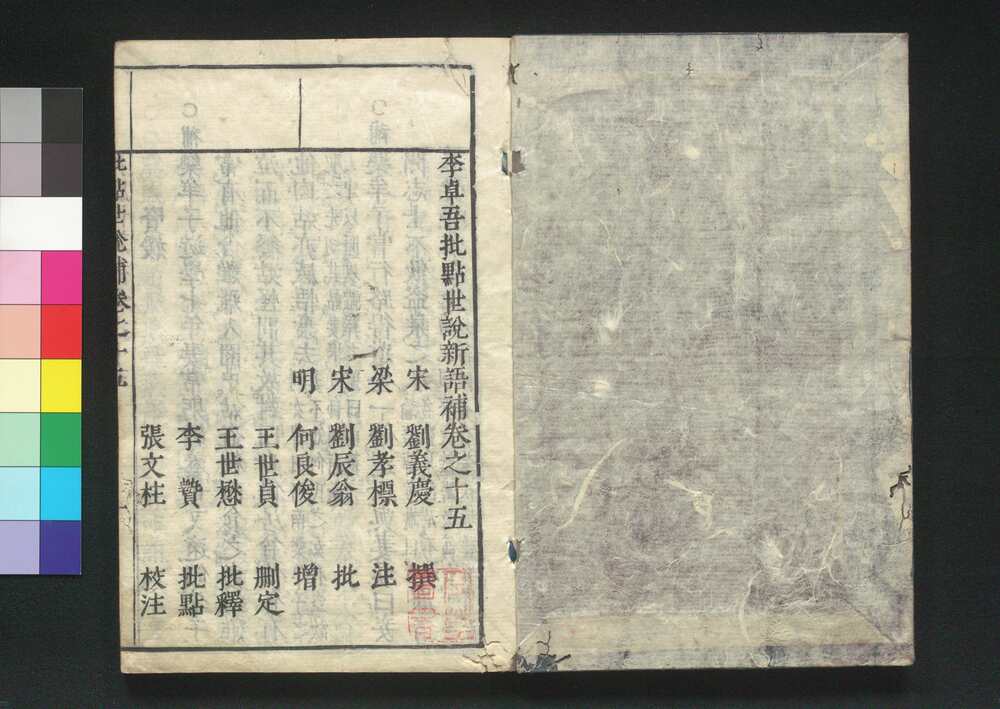 李卓吾批點世說新語補卷之十五
宋 劉義慶 撰
梁 劉孝標 注
宋 劉辰翁 批
明 何良俊 增
王世貞 刪定
王世懋 批釋
李贄 批點
張文柱 校注
批點世說補卷之十五